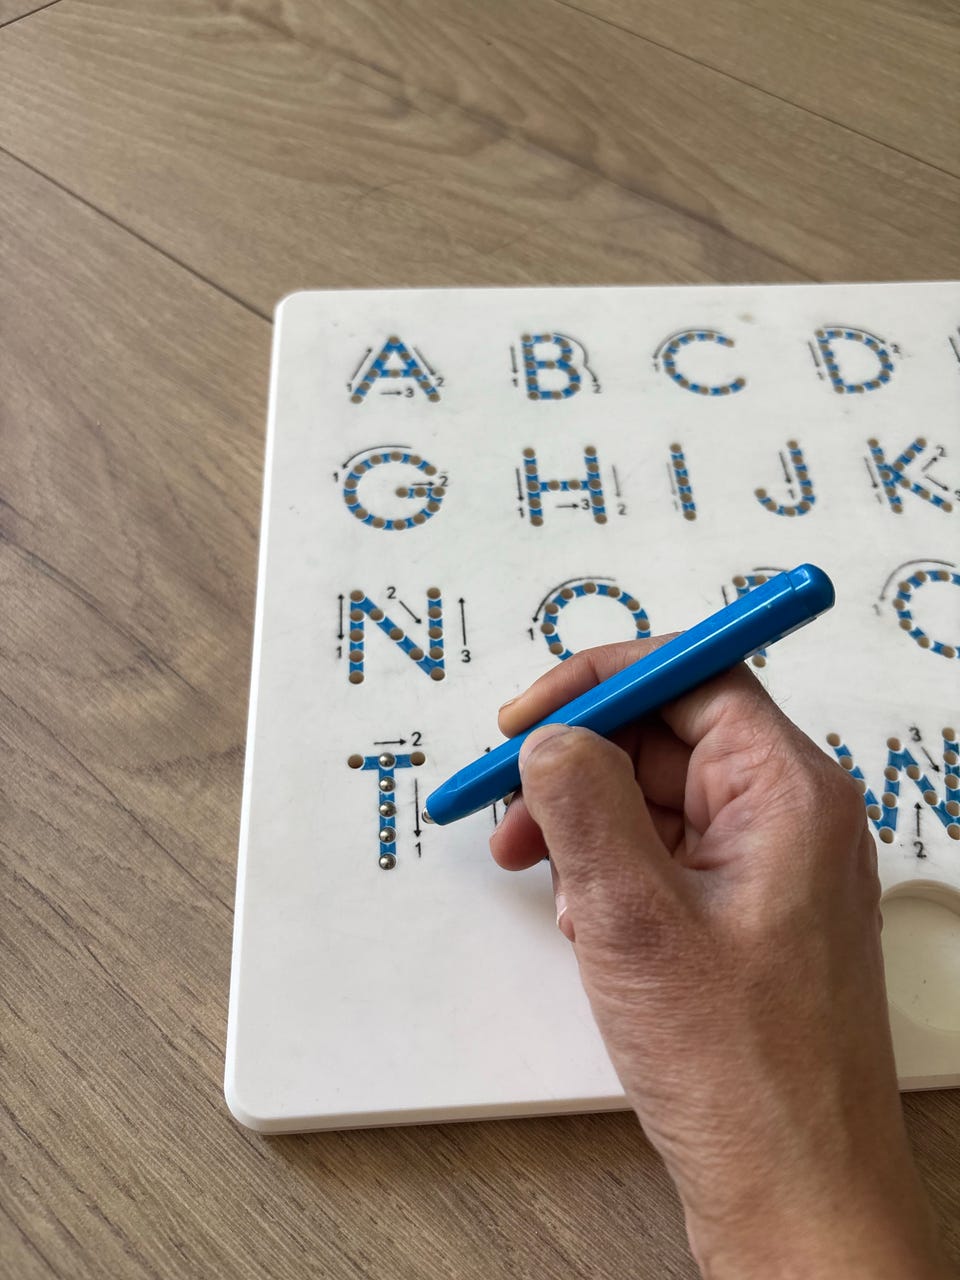 A B C D
G H I J K
N O
T W